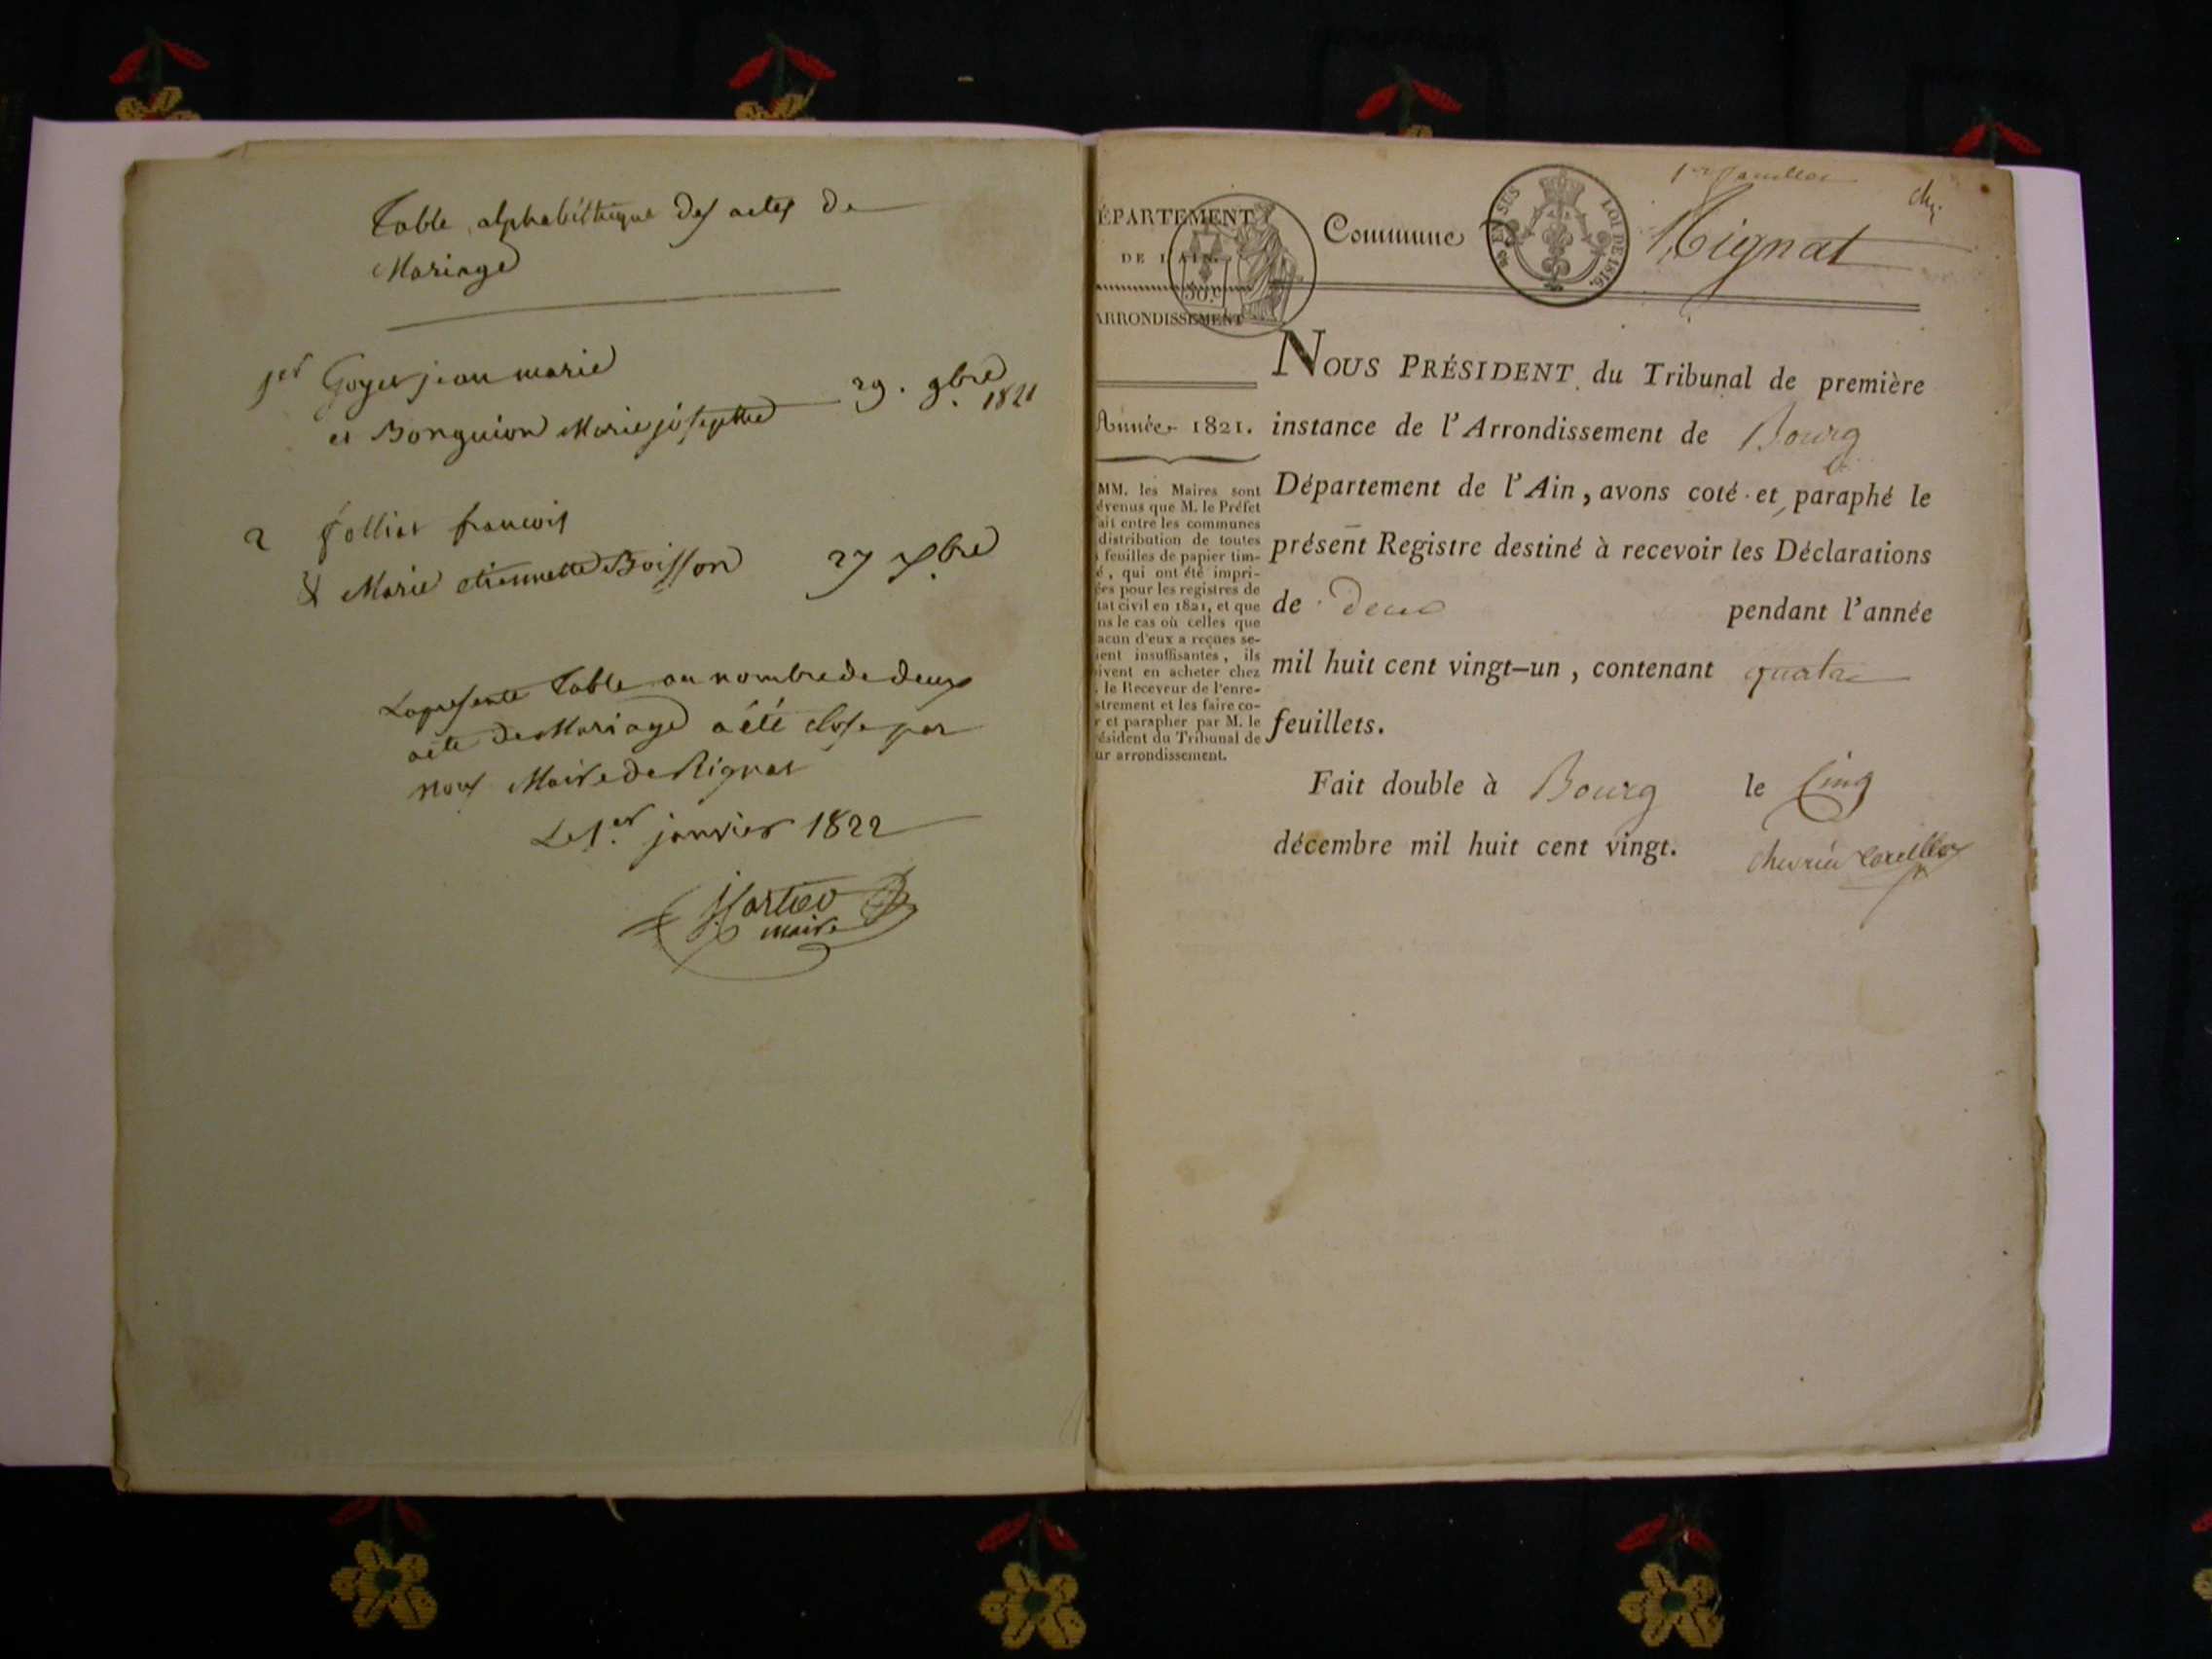 Table alphabéthique des actes de
Mariage
1er Goyet jean marie
et Bonguion Marie josephte 29. 9bre 1821
2 folliet francois
& Marie etiennette Boisson 27 Xbre
La presente Table au nombre de deux
acte de Mariage a été close par
nous Maire de Rignat
Le 1.er janvier 1822
maire
1er feuillet
ÉPARTEMENT
DE L'AIN.
50.c
ARRONDISSEMENT
Commune
EN SUS
LOI DE 1816.
Rignat
Année 1821.
MM. les Maires sont
évenus que M. le Préfet
ait entre les communes
distribution de toutes
s feuilles de papier tim-
é, qui ont été impri-
ées pour les registres de
tat civil en 1821, et que
ns le cas où celles que
acun d'eux a reçues se-
ient insuffisantes, ils
oivent en acheter chez
. le Receveur de l'enre-
strement et les faire co-
r et parapher par M. le
ésident du Tribunal de
ur arrondissement.
NOUS PRÉSIDENT du Tribunal de première
instance de l'Arrondissement de Bourg
Département de l'Ain, avons coté et paraphé le
présent Registre destiné à recevoir les Déclarations
de deces pendant l'année
mil huit cent vingt-un, contenant quatre
feuillets.
Fait double à Bourg le Cinq
décembre mil huit cent vingt.